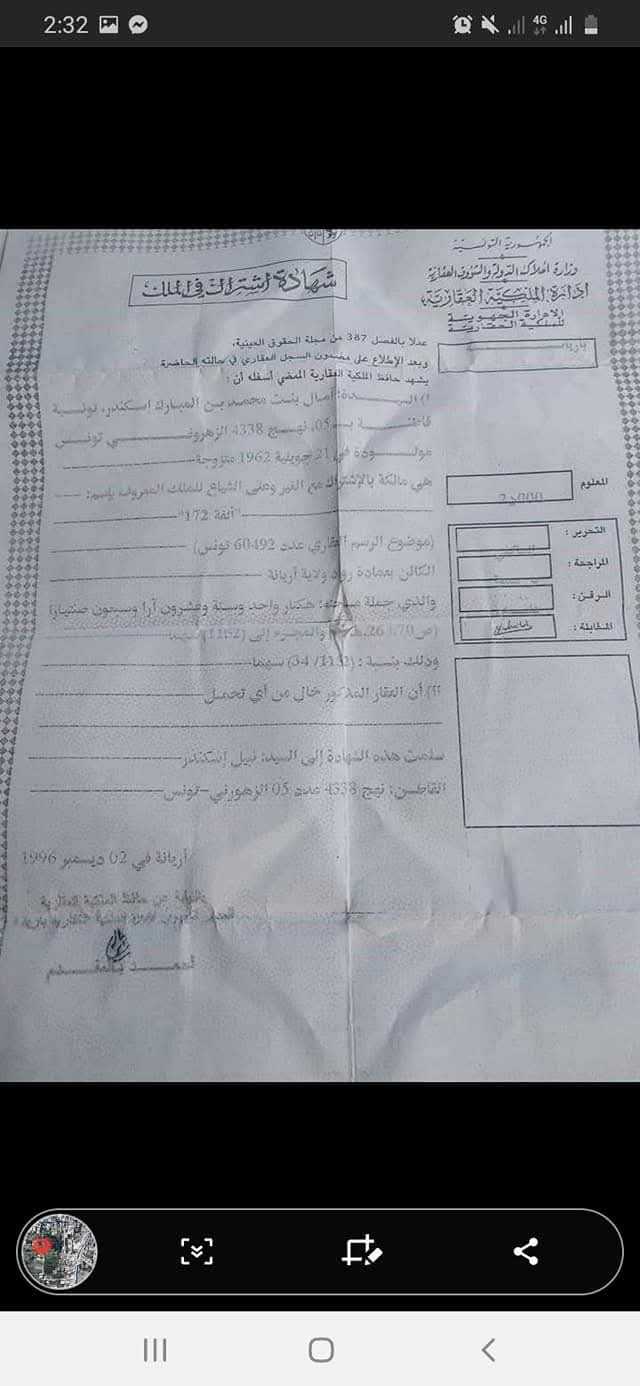 2:32
4G
الجمهورية التونسية
وزارة أملاك الدولة والشؤون العقارية
إدارة الملكية العقارية
الإدارة الجهوية
للملكية العقارية
شهادة اشتراك في الملك
عملا بالفصل 387 من مجلة الحقوق العينية،
وبعد الإطلاع على مضمون السجل العقاري في حالته الحاضرة
يشهد حافظ الملكية العقارية الممضي أسفله أن :
آمال بنت محمد بن المبارك اسكندر، تونسية
05، نهج 4338 الزهروني تونس
مولودة في 21 جويلية 1962 متزوجة
هي مالكة بالإشتراك مع الغير وعلى الشياع للملك المعروف بإسم:
"172 ألفة"
(موضوع الرسم العقاري عدد 60492 تونس)
الكائن بعمادة ولاية أريانة
والذي جملة هكتار واحد وستة وعشرون آرا وسبعون صنتيارا
والمجزء إلى سهما
وذلك بنسبة : سهما
II) أن العقار المذكور خال من أي تحمل
سلمت هذه الشهادة إلى السيد: نبيل إسكندر
القاطن: نهج 4338 عدد 05 الزهروني-تونس
المعلوم
التحرير :
المراجعة :
الرقن :
المقابلة :
أريانة في 02 ديسمبر 1996
عن حافظ الملكية العقارية